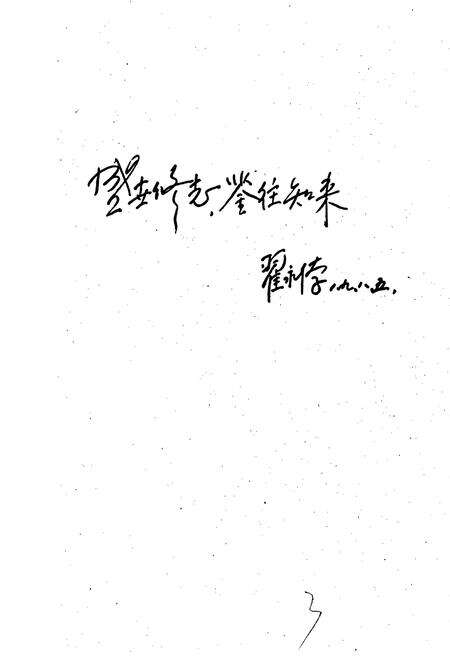 盛世修志,鉴往知来
翟永 一九八五.
3